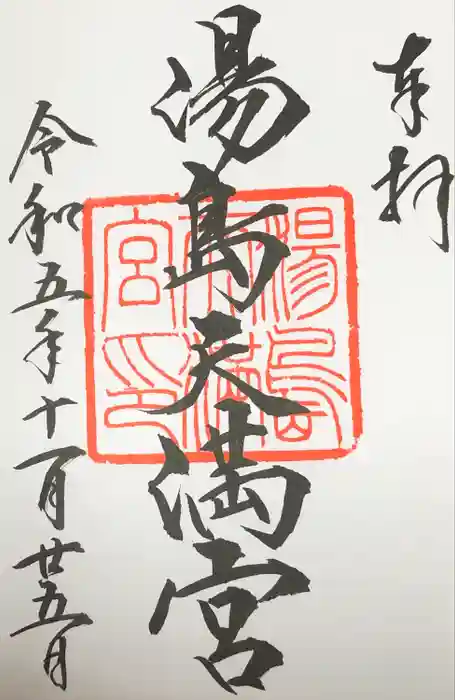 奉拝
湯島天満宮
令和五年十一月廿五日
湯島
天満
宮印